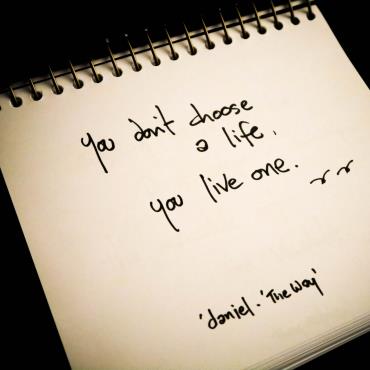 you don't choose
a life,
you live one.
'daniel - 'The Way'